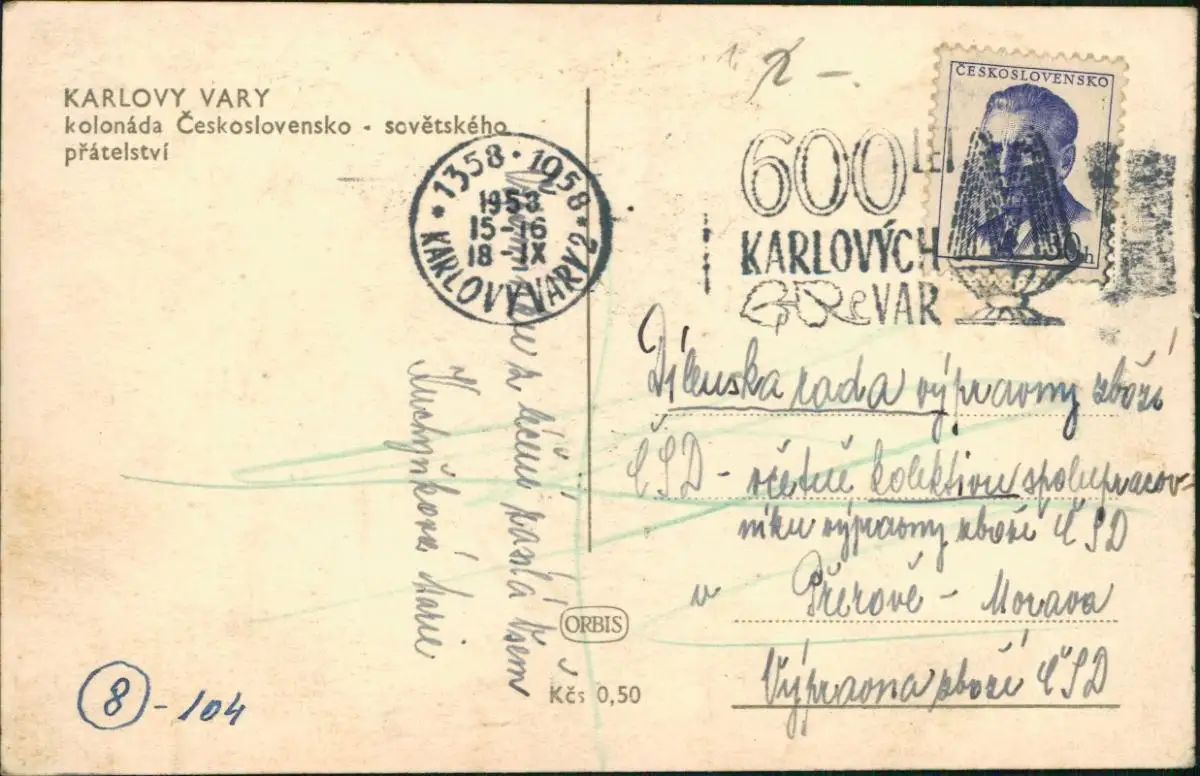 KARLOVY VARY
kolonáda Československo - sovětského
přátelství
2 -.
ČESKOSLOVENSKO
30h
1358 · 1958
1958
15-16
18 -IX
KARLOVY VARY 2
600 LET
KARLOVÝCH
VAR
z léčení zasílá všem
Kuchyňková Marie
Dílenska rada výpravny zboží
ČSD - včetně kolektivu spolupracov-
níku výpravny zboží ČSD
v Přerově - Morava
Výpravna zboží ČSD
ORBIS
Kčs 0,50
8 - 104